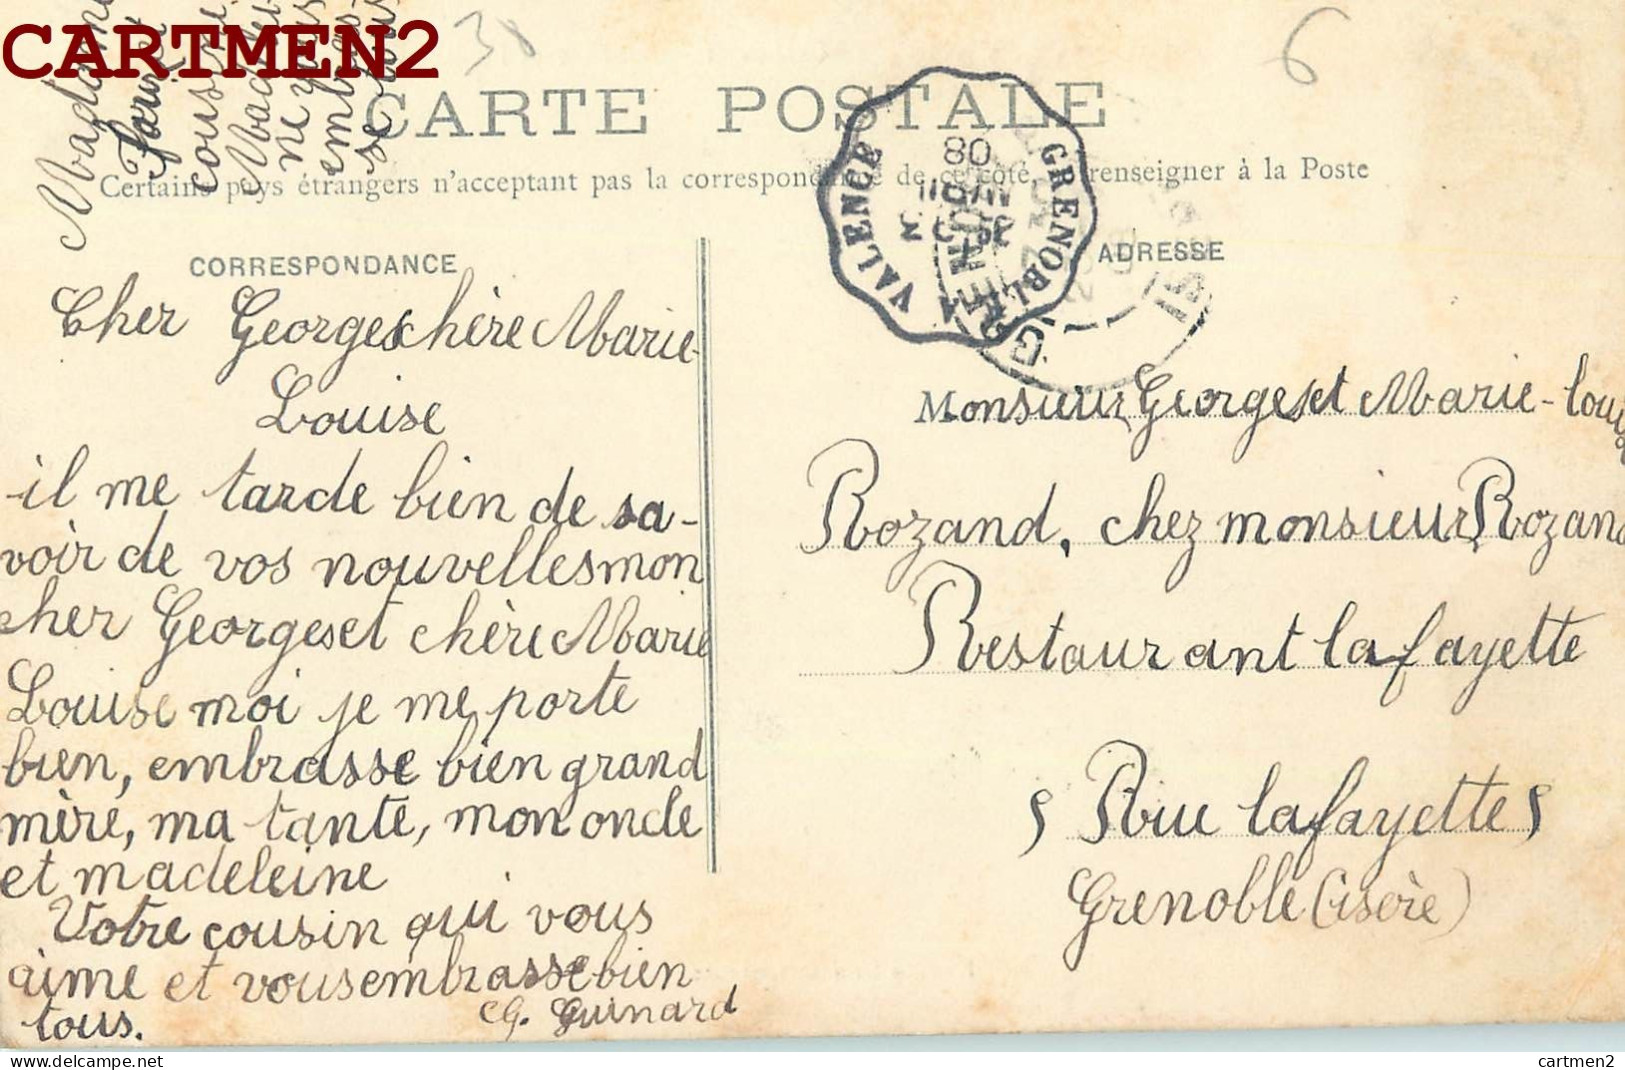 CARTMEN2
38
6
Madame
cousine
Madelei-
ne vous
embras-
se tous
CARTE POSTALE
Certains pays étrangers n'acceptant pas la correspondance de ce côté, renseigner à la Poste
VALENCE A GRENOBLE
08
CORRESPONDANCE
ADRESSE
Cher Georges chère Marie-
Louise
il me tarde bien de sa-
voir de vos nouvelles mon
cher Georges et chère Marie
Louise moi je me porte
bien, embrasse bien grand
mère, ma tante, mon oncle
et madeleine
Votre cousin qui vous
aime et vous embrasse bien
tous.
G. Guinard
Monsieur Georges et Marie-louise
Rozand, chez monsieur Rozand
Restaurant lafayette
5 Rue lafayette 5
Grenoble (isère)
cartmen2